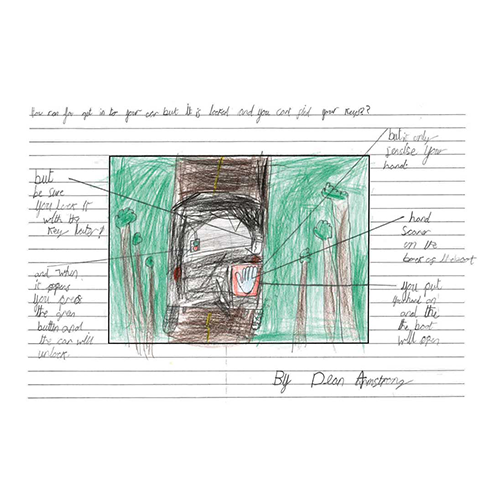 How can you get in to your car but it is locked and you cant find your keys?
but it only
senslse your
hand.
but
be sure
you lock it
with the
key later
hand
Scaner
on the
back of the boot
and when
it opens
you press
the green
button and
the car will
unlock
you put
your hand on
and the
the boot
will open
By Dean Armstrong